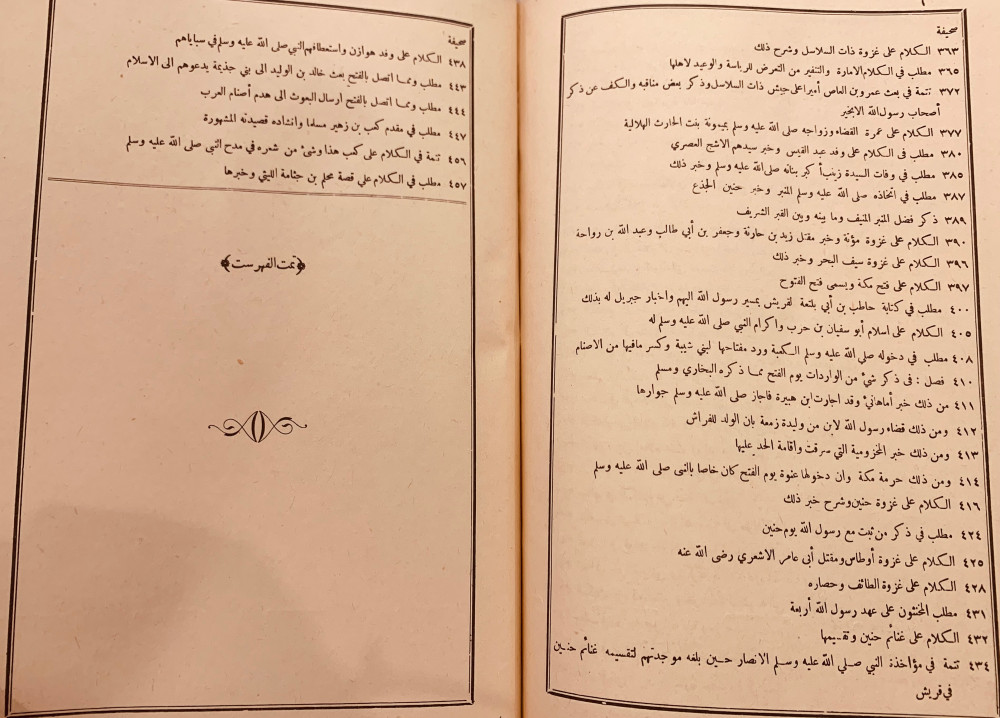 صحيفة
٣٦٣ الكلام على غزوة ذات السلاسل وشرح ذلك
٣٦٥ مطلب في الكلام الامارة والتنفير من التعرض للرياسة والوعيد لاهلها
٣٧٢ تتمة في بعث عمرو بن العاص أميرا على جيش ذات السلاسل وذكر بعض مناقبه والكف عن ذكر
أصحاب رسول الله الابخير
٣٧٧ الكلام على عمرة القضاء وزواجه صلى الله عليه وسلم بميمونة بنت الحارث الهلالية
٣٨٠ مطلب في الكلام على وفد عبد القيس وخبر سيدهم الاشج العصري
٣٨٥ مطلب في وفات السيدة زينب أكبر بناته صلى الله عليه وسلم وخبر ذلك
٣٨٧ مطلب في اتخاذه صلى الله عليه وسلم المنبر وخبر حنين الجذع
٣٨٩ ذكر فضل المنبر المنيف وما بينه وبين القبر الشريف
٣٩٠ الكلام على غزوة مؤتة وخبر مقتل زيد بن حارثة وجعفر بن أبي طالب وعبد الله بن رواحة
٣٩٦ الكلام على غزوة سيف البحر وخبر ذلك
٣٩٧ الكلام على فتح مكة ويسمى فتح الفتوح
٤٠٠ مطلب في كتابة حاطب بن أبي بلتعة لقريش بمسير رسول الله اليهم واخبار جبريل له بذلك
٤٠٥ الكلام على اسلام أبو سفيان بن حرب واكرام النبي صلى الله عليه وسلم له
٤٠٨ مطلب في دخوله صلى الله عليه وسلم الكعبة ورد مفتاحها لبني شيبة وكسر مافيها من الاصنام
٤١٠ فصل : في ذكر شئ من الواردات يوم الفتح مما ذكره البخاري ومسلم
٤١١ من ذلك خبر أم هانئ وقد اجارت ابن هبيرة فاجاز صلى الله عليه وسلم جوارها
٤١٢ ومن ذلك قضاء رسول الله لابن من وليدة زمعة بان الولد للفراش
٤١٣ ومن ذلك خبر المخزومية التي سرقت واقامة الحد عليها
٤١٤ ومن ذلك حرمة مكة وان دخولها عنوة يوم الفتح كان خاصا بالنبي صلى الله عليه وسلم
٤١٦ الكلام على غزوة حنين وشرح خبر ذلك
٤٢٤ مطلب في ذكر من ثبت مع رسول الله يوم حنين
٤٢٥ الكلام على غزوة أوطاس ومقتل أبى عامر الاشعري رضى الله عنه
٤٢٨ الكلام على غزوة الطائف وحصاره
٤٣١ مطلب المخنثون على عهد رسول الله أربعة
٤٣٢ الكلام على غنائم حنين وتقسيمها
٤٣٤ تتمة في مؤاخذة النبي صلى الله عليه وسلم الانصار حسين بلغه موجدتهم لتقسيمه غنائم حنين
في قريش
صحيفة
٤٣٨ الكلام على وفد هوازن واستعطافهم النبي صلى الله عليه وسلم في سباياهم
٤٤٣ مطلب ومما اتصل بالفتح بعث خالد بن الوليد الى بني جذيمة يدعوهم الى الاسلام
٤٤٤ مطلب ومما اتصل بالفتح ارسال البعوث الى هدم أصنام العرب
٤٤٧ مطلب في مقدم كعب بن زهير مسلما وانشاده قصيدته المشهورة
٤٥٦ تتمة في الكلام على كعب هذا وشئ من شعره في مدح النبي صلى الله عليه وسلم
٤٥٧ مطلب في الكلام علي قصة محلم بن جثامة الليثي وخبرها
﴿تمت الفهرست﴾